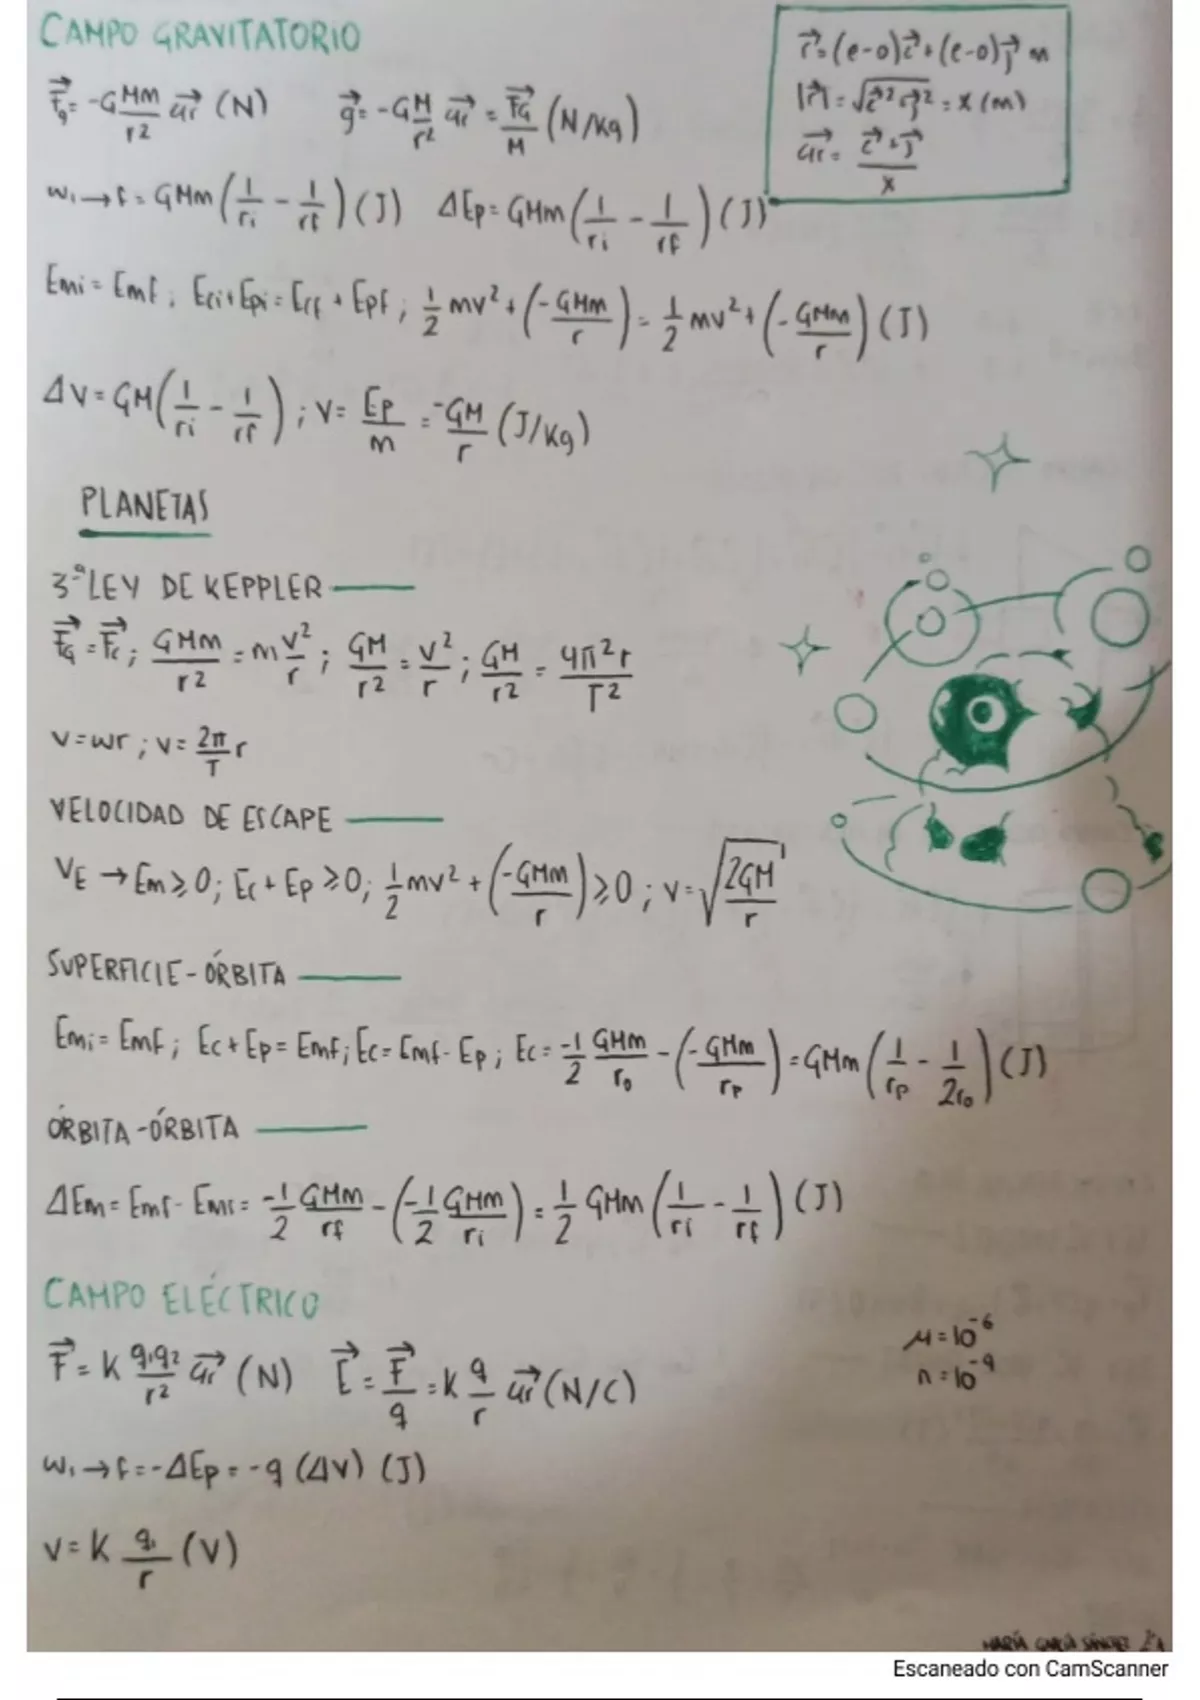 CAMPO GRAVITATORIO
r⃗=(e-o)i⃗+(e-o)j⃗ m
|r⃗|=√(i⃗²+j⃗²)=x(m)
ur⃗=(i⃗+j⃗)/x
F⃗g=-G Mm/r² ur⃗ (N) g⃗=-G M/r² ur⃗=F⃗G/M (N/Kg)
Wi→f=GMm(1/ri - 1/rf)(J) ΔEp=GMm(1/ri - 1/rf)(J)
Emi=Emf; Eci+Epi=Ecf+Epf; 1/2 mv²+(-GMm/r)=1/2 mv²+(-GMm/r)(J)
ΔV=GM(1/ri - 1/rf); V=Ep/m=-GM/r (J/Kg)
PLANETAS
3ªLEY DE KEPPLER
F⃗G=F⃗c; GMm/r²=m v²/r; GM/r²=v²/r; GM/r²=4π²r/T²
v=wr; v=2π/T r
VELOCIDAD DE ESCAPE
VE→Em≥0; Ec+Ep≥0; 1/2 mv²+(-GMm/r)≥0; v=√(2GM/r)
SUPERFICIE-ÓRBITA
Emi=Emf; Ec+Ep=Emf; Ec=Emf-Ep; Ec=-1/2 GMm/ro -(-GMm/rp)=GMm(1/rp - 1/2ro)(J)
ÓRBITA-ÓRBITA
ΔEm=Emf-Emi=-1/2 GMm/rf -(-1/2 GMm/ri)=1/2 GMm(1/ri - 1/rf)(J)
CAMPO ELÉCTRICO
μ=10⁻⁶
n=10⁻⁹
F⃗=K q₁q₂/r² ur⃗ (N) E⃗=F⃗/q=K q/r ur⃗(N/C)
Wi→f=-ΔEp=-q(ΔV) (J)
V=K q/r (V)
MARÍA GARCÍA SÁNCHEZ
Escaneado con CamScanner